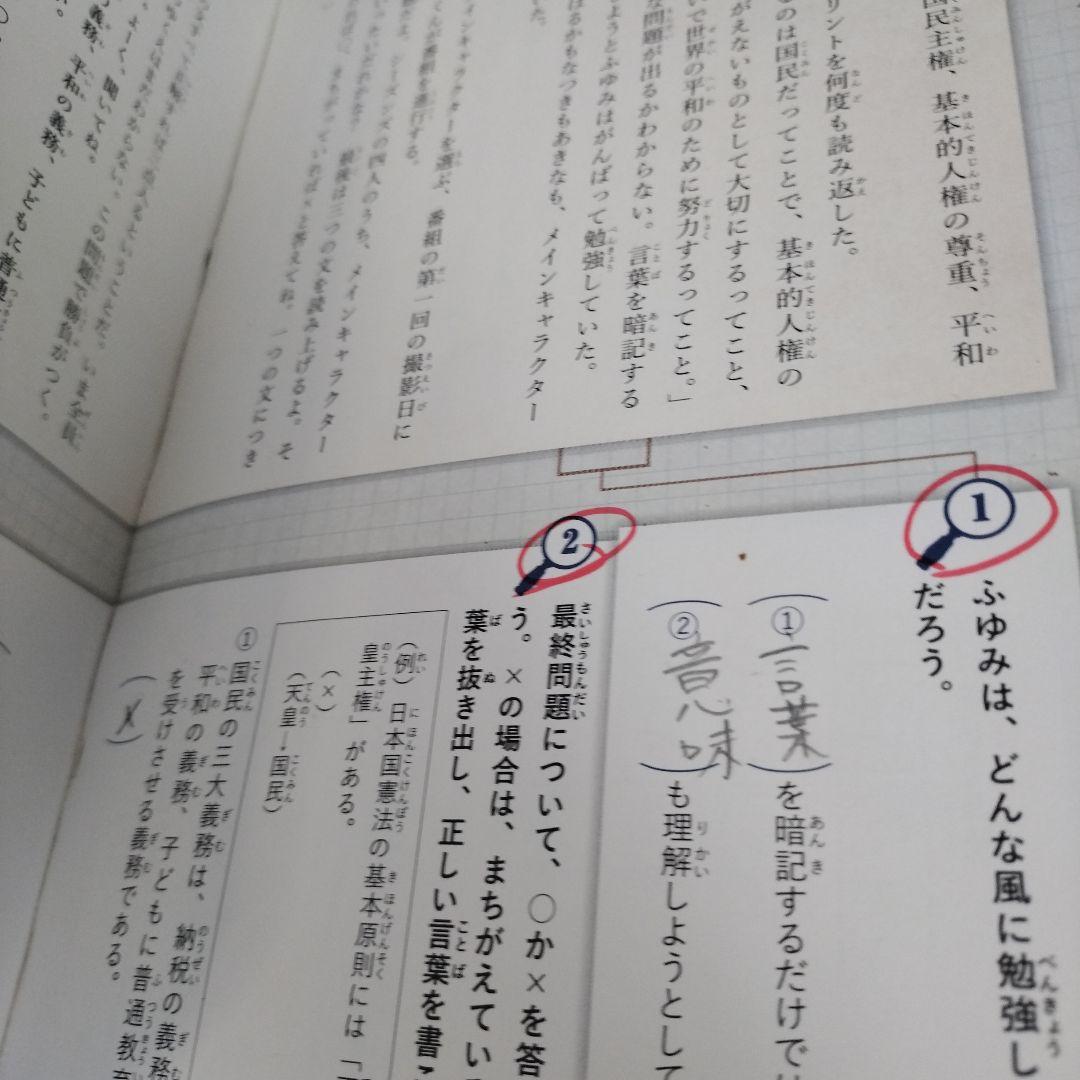 国民主権、基本的人権の尊重、平和
リントを何度も読み返した。
るのは国民だってことで、基本的人権の
がえないものとして大切にするってこと、
いで世界の平和のために努力するってこと。」
な問題が出るかわからない。言葉を暗記する
しようとふゆみはがんばって勉強していた。
はるかもなつきもあきなも、メインキャラクター
いた。
インキャラクターを選ぶ、番組の第一回の撮影日に
シーズンズの四人のうち、メインキャラクター
最後は三つの文を読み上げるよ。そ
と答えてね。一つの文につき
この問題で勝負がつく。
よーく、聞いてね。
の義務、平和の義務、子どもに普通
①
ふゆみは、どんな風に勉強し
だろう。
(①言葉)を暗記するだけでは
(②意味)も理解しようとして
②
最終問題について、○か×を答
う。×の場合は、まちがえてい
葉を抜き出し、正しい言葉を書こ
(例)日本国憲法の基本原則には「
皇主権」がある。
(×)
(天皇→国民)
①国民の三大義務は、納税の義務
平和の義務、子どもに普通教育
を受けさせる義務である。
(×)